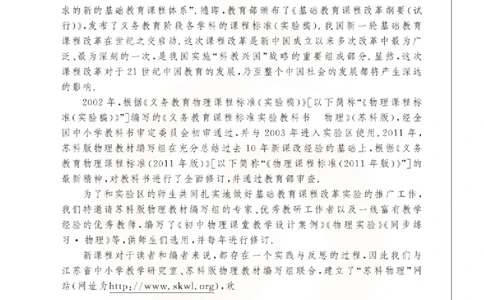 求的新的基础教育课程体系”.随即,教育部颁布了《基础教育课程改革纲要(试
行)》,发布了义务教育阶段各学科的课程标准(实验稿).我国新一轮基础教育
课程改革在世纪之交启动.这次课程改革是新中国成立以来多次改革中最为广
泛、最为深刻的一次,是我国实施“科教兴国”战略的重要组成部分.显然,这次
课程改革对于21世纪中国教育的发展,乃至整个中国社会的发展都将产生深远
的影响.
2002年,根据《义务教育物理课程标准(实验稿)》[以下简称“《物理课程标
准(实验稿)》”]编写的《义务教育课程标准实验教科书 物理》(苏科版),经全
国中小学教科书审定委员会初审通过,并与2003年进入实验区使用.2011年,
苏科版物理教材编写组在充分总结过去10年新课改经验的基础上,根据《义务
教育物理课程标准(2011年版)》[以下简称“《物理课程标准(2011年版)》”]的
最新精神,对教科书进行了全面修订,并通过教育部审查.
为了和实验区的师生共同扎实地做好基础教育课程改革实验的推广工作,
我们特邀请苏科版物理教材编写组的专家、优秀教研工作者以及一线富有教学
经验的优秀教师,编写了《初中物理课堂教学设计案例》《物理实验》《同步练
习·物理》等,供师生们选用,并每年进行修订.
新课程对于读者和编者来说,都存在一个实践与反思的过程,因此我们与
江苏省中小学教学研究室、苏科版物理教材编写组联合,建立了“苏科物理”网
站(网址为http://www.skwl.org),欢